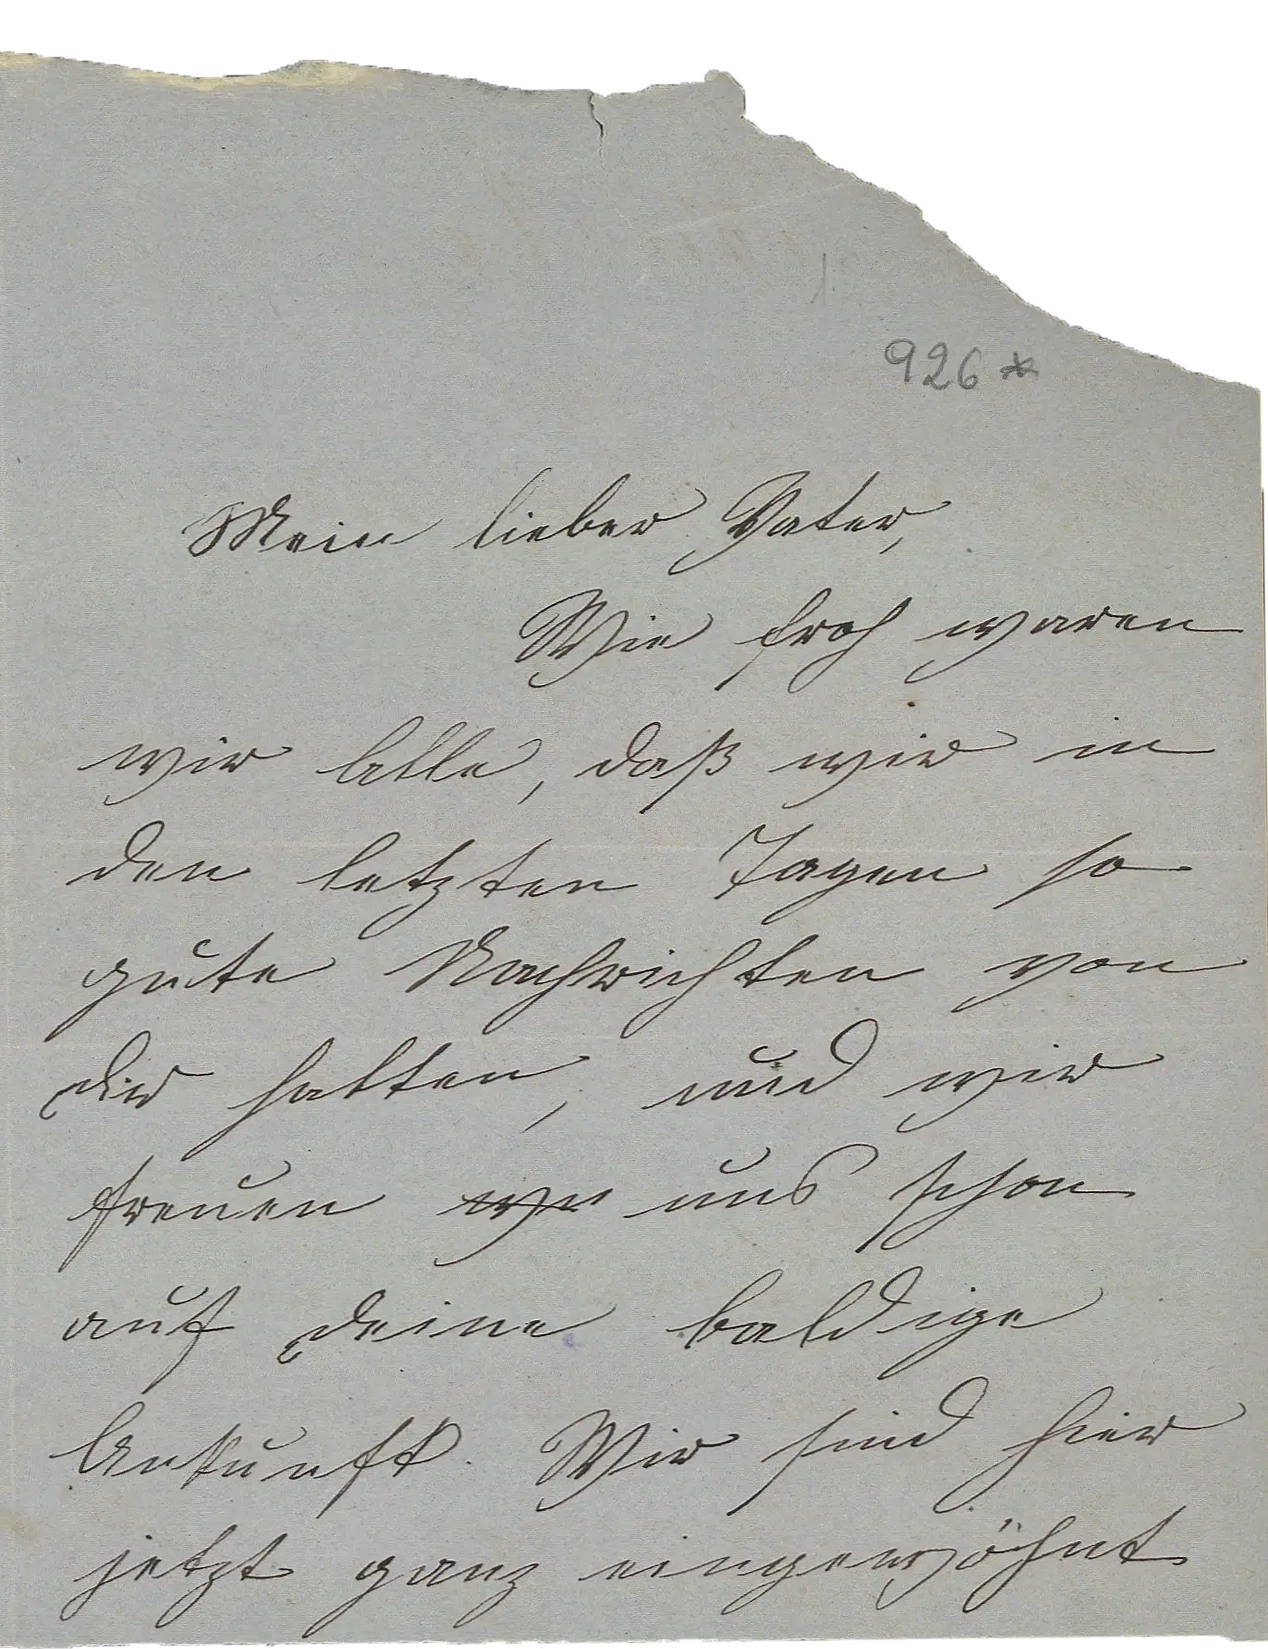 926*
Mein lieber Vater,
Wie froh waren
wir Alle, daß wir in
den letzten Tagen so
gute Nachrichten von
Dir hatten, und wir
freuen uns schon
auf Deine baldige
Ankunft. Wir sind hier
jetzt ganz eingewöhnt